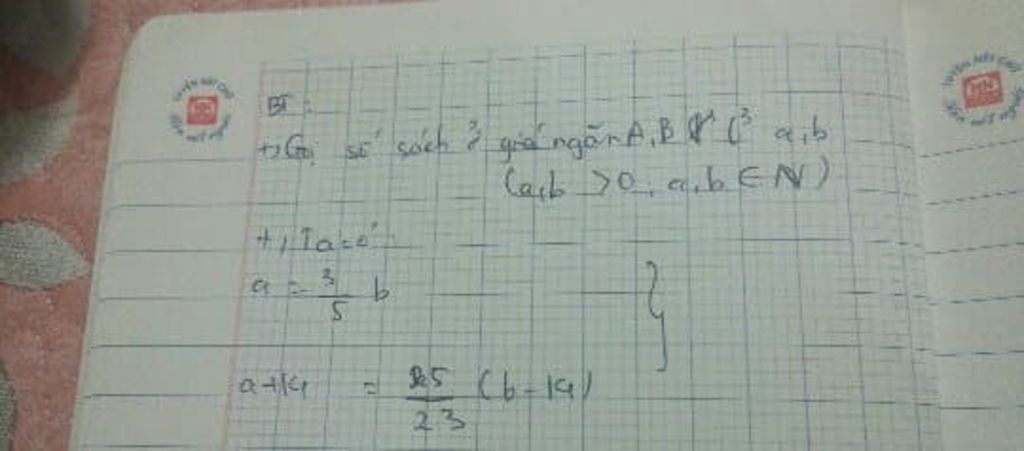 +, Gọi số sách ở giá ngăn A, B là a, b
(a,b > 0, a,b ∈ N)
+, Ta có:
a = 3/5 b
a + 14 = 25/23 (b - 14)